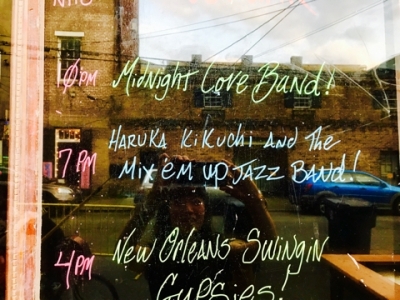 10PM Midnight Love Band!
HARUKA KiKUCHi AND The
7PM Mix 'EM UP JAZZ BAND!
4PM NEW ORLEANS SWiNGiN
GYPSiES!